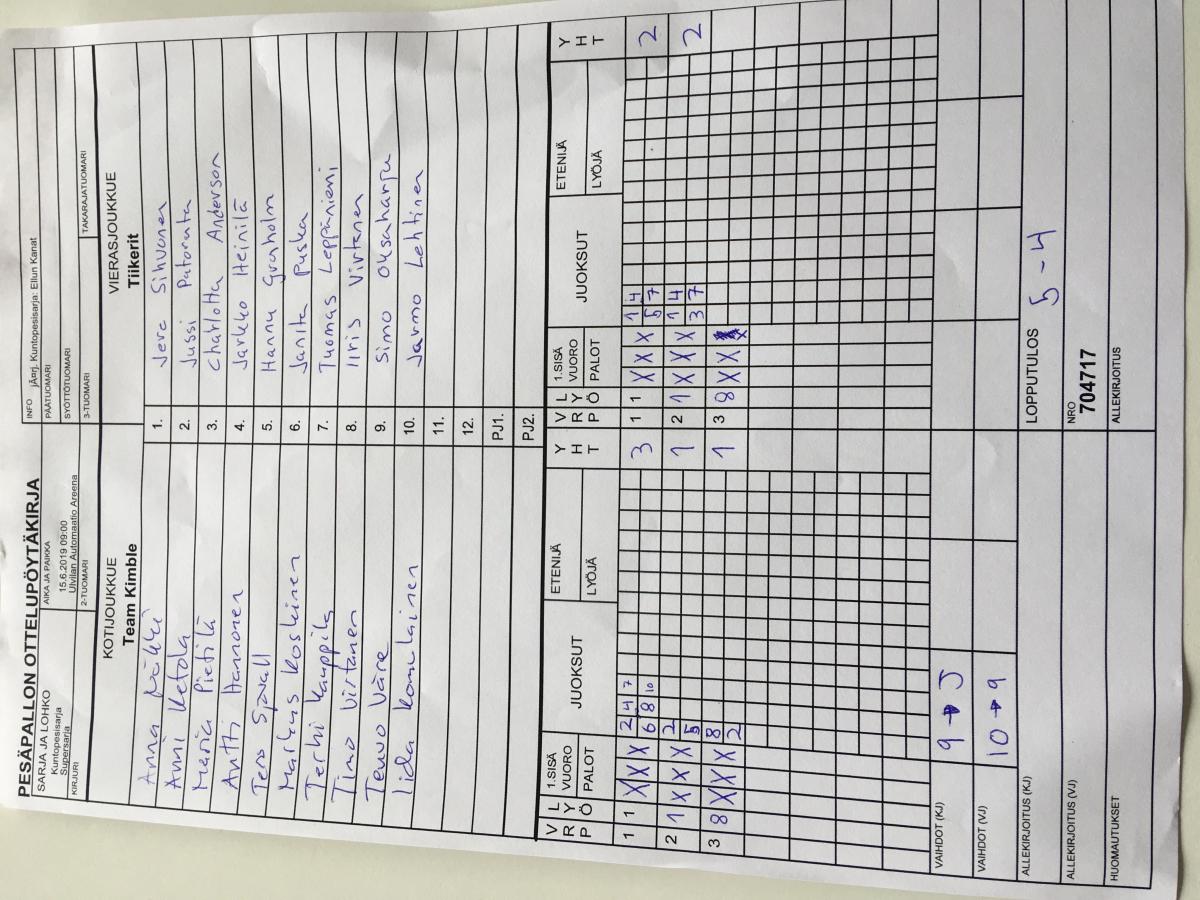 PESÄPALLON OTTELUPÖYTÄKIRJA
SARJA JA LOHKO
Kuntopesisarja
Supersarja
AIKA JA PAIKKA
15.6.2019 09:00
Ulvilan Automaatio Areena
INFO jÄ¤rj. Kuntopesisarja: Ellun Kanat
PÄÄTUOMARI
SYÖTTÖTUOMARI
KIRJURI 2-TUOMARI 3-TUOMARI TAKARAJATUOMARI
KOTIJOUKKUE VIERASJOUKKUE
Team Kimble Tiikerit
Anna 1. Jere Sihvonen
Anni Ketola 2. Jussi Patoranta
Maria Pietilä 3. Charlotta Anderson
Antti Hannonen 4. Jarkko Heinilä
Tero Sjövall 5. Hannu Granholm
Markus Koskinen 6. Janita Puska
Terhi Kauppila 7. Tuomas Leppäniemi
Timo Virtanen 8. Iiris Virtanen
Teuvo Väre 9. Simo Oksaharju
Iida 10. Jarmo Lehtinen
11.
12.
PJ1.
PJ2.
V R P L Y Ö 1.SISÄ VUORO PALOT JUOKSUT ETENIJÄ LYÖJÄ Y H T V R P L Y Ö 1.SISÄ VUORO PALOT JUOKSUT ETENIJÄ LYÖJÄ Y H T
1 1 X X X 2 4 7 3 1 1 X X X 1 4 2
6 8 10 5 7
2 1 X X X 2 1 2 1 X X X 1 4 2
5 3 7
3 8 X X X 8 1 3 8 X X X
2
VAIHDOT (KJ) 9 → J
VAIHDOT (VJ) 10 → 9
ALLEKIRJOITUS (KJ) LOPPUTULOS 5 - 4
ALLEKIRJOITUS (VJ) NRO
704717
HUOMAUTUKSET ALLEKIRJOITUS